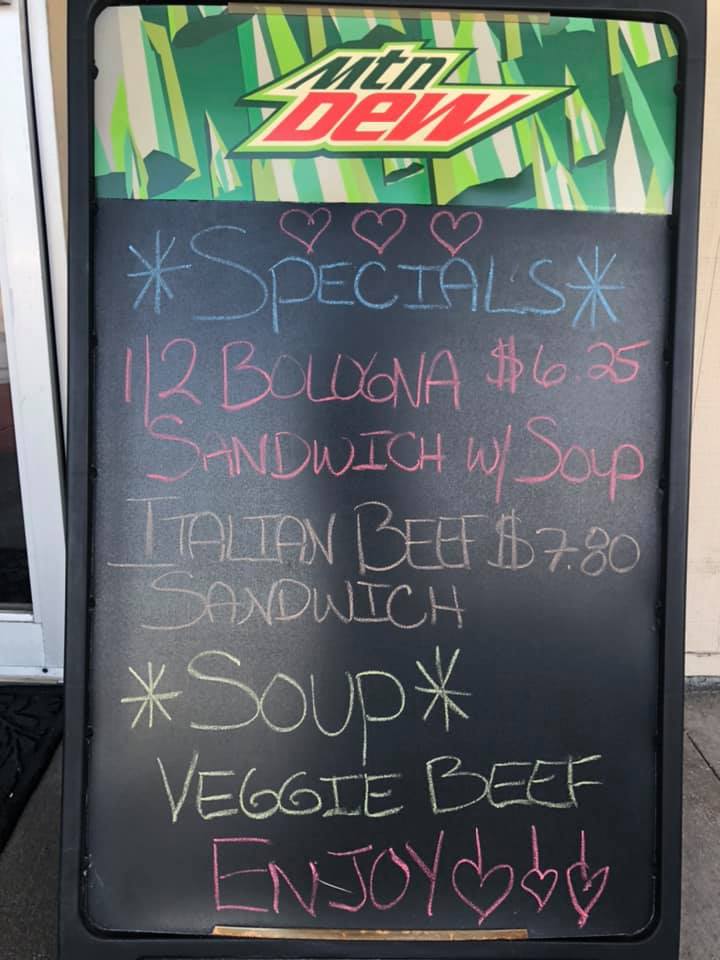 Mtn
Dew
*SPECIALS*
1/2 BOLOGNA $6.25
SANDWICH W/ SOUP
ITALIAN BEEF $7.80
SANDWICH
*SOUP*
VEGGIE BEEF
ENJOY